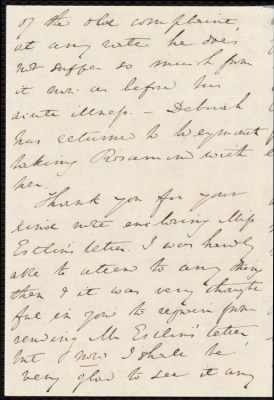 of the old complaint
at any rate he does
not suffer so much from
it now as before his
acute illness. — Deborah
has returned to Weymouth
taking Rosamond with
her.
Thank you for your
kind note enclosing Miss
Estlin's letter. I was hardly
able to attend to any thing
then & it was very thought
ful in you to refrain from
sending Mr Estlin's letter
but now I shall be
very glad to see it any